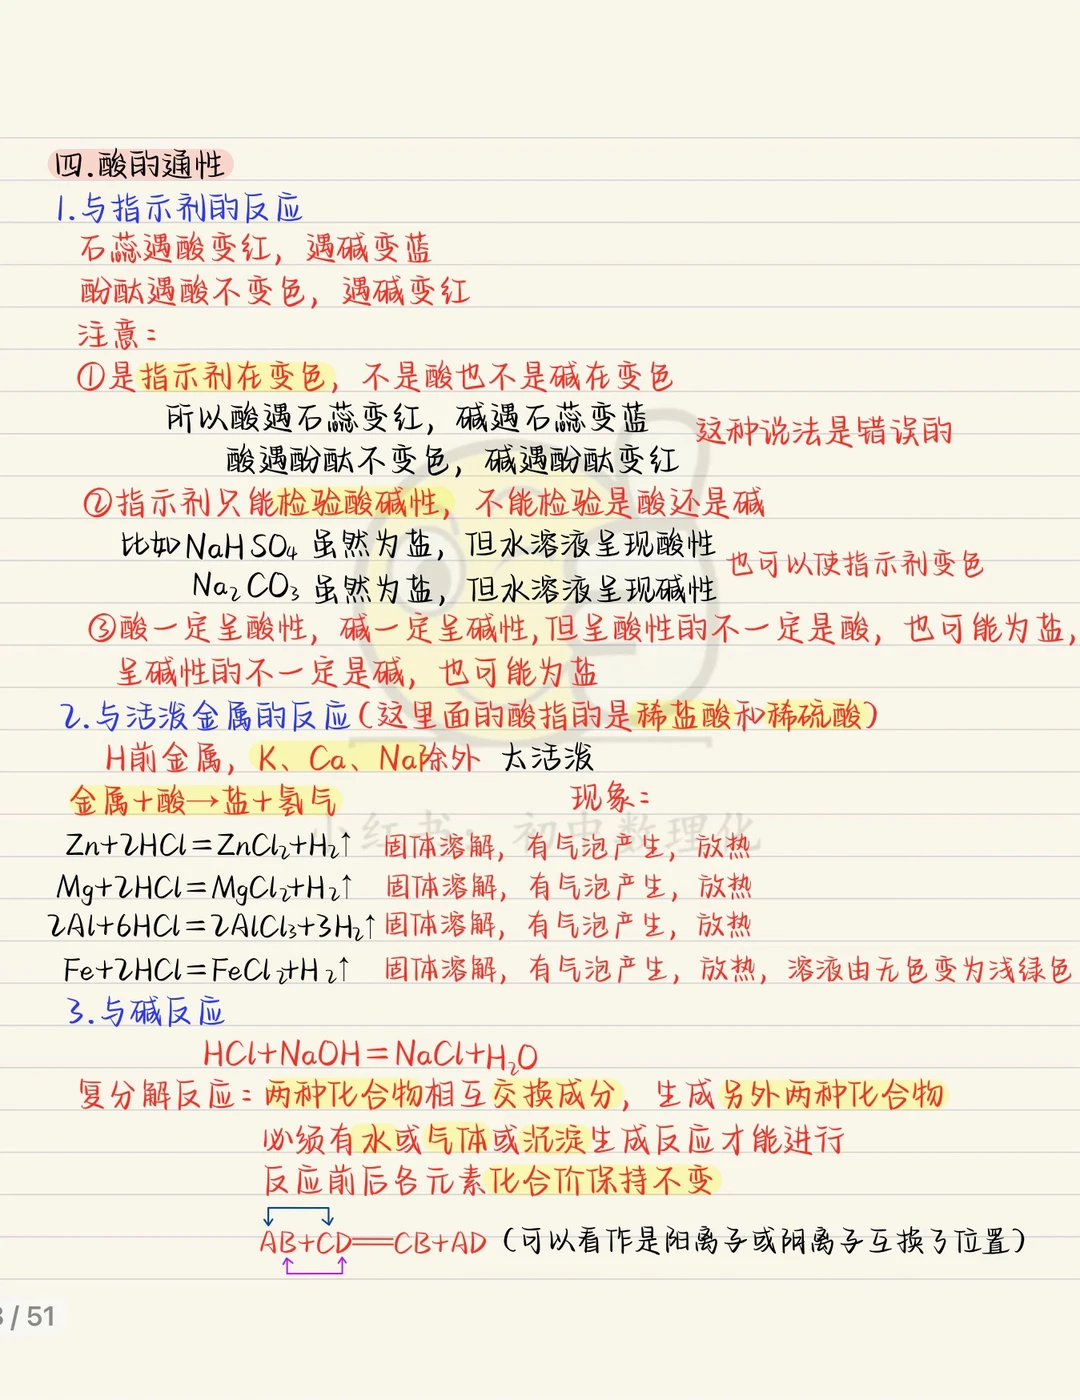 四.酸的通性
1.与指示剂的反应
石蕊遇酸变红，遇碱变蓝
酚酞遇酸不变色，遇碱变红
注意：
①是指示剂在变色，不是酸也不是碱在变色
所以酸遇石蕊变红，碱遇石蕊变蓝
酸遇酚酞不变色，碱遇酚酞变红
这种说法是错误的
②指示剂只能检验酸碱性，不能检验是酸还是碱
比如NaHSO₄虽然为盐，但水溶液呈现酸性
Na₂CO₃虽然为盐，但水溶液呈现碱性
也可以使指示剂变色
③酸一定呈酸性，碱一定呈碱性,但呈酸性的不一定是酸，也可能为盐，
呈碱性的不一定是碱，也可能为盐
2.与活泼金属的反应(这里面的酸指的是稀盐酸和稀硫酸)
H前金属，K、Ca、Na除外 太活泼
金属+酸→盐+氢气 现象：
小红书：初中数理化
Zn+2HCl=ZnCl₂+H₂↑ 固体溶解，有气泡产生，放热
Mg+2HCl=MgCl₂+H₂↑ 固体溶解，有气泡产生，放热
2Al+6HCl=2AlCl₃+3H₂↑ 固体溶解，有气泡产生，放热
Fe+2HCl=FeCl₂+H₂↑ 固体溶解，有气泡产生，放热，溶液由无色变为浅绿色
3.与碱反应
HCl+NaOH=NaCl+H₂O
复分解反应：两种化合物相互交换成分，生成另外两种化合物
必须有水或气体或沉淀生成反应才能进行
反应前后各元素化合价保持不变
AB+CD=CB+AD (可以看作是阳离子或阴离子互换了位置)
/ 51